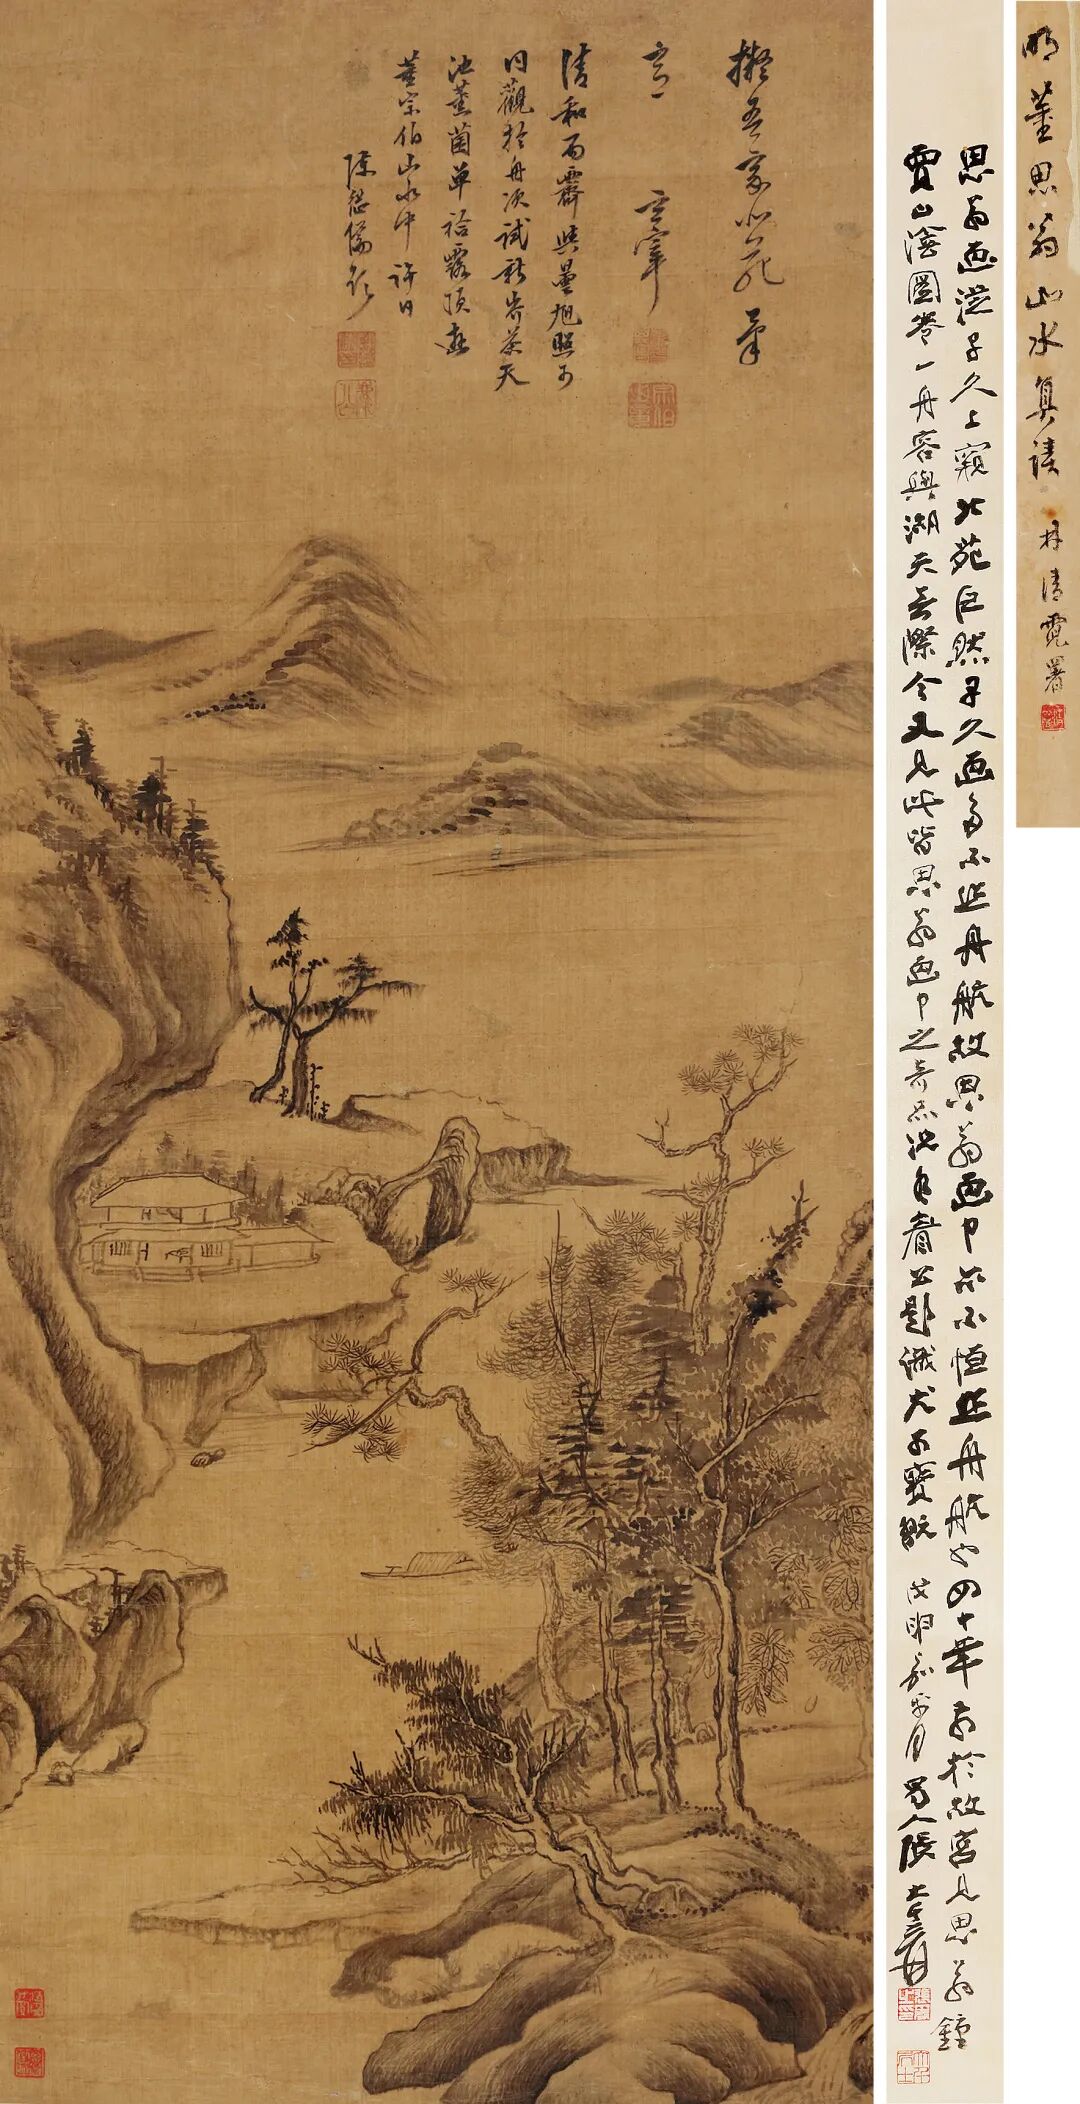 擬吾家北苑筆
玄宰
清和雨霽與曼旭照少
同觀於舟次試新岕茶天
池蕙茵單袷露頂
董宗伯山水中許日
陳繼儒記
思翁画從子久上窺北苑巨然子久画多不作舟航故思翁画中亦不恒作舟航也四十年前於故宮見思翁鍾
賈山陰圖卷一舟容與湖天無際今又見此皆思翁画中之奇品況有眉公題識尤可寶翫 戊申嘉平月 蜀人張大千爰
明董思翁山水真蹟 林清霓署